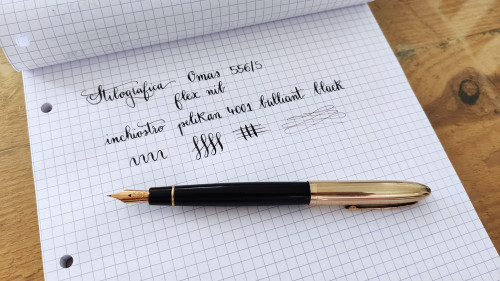 Stilografica Omas 556/S
flex nib
inchiostro pelikan 4001 brilliant black